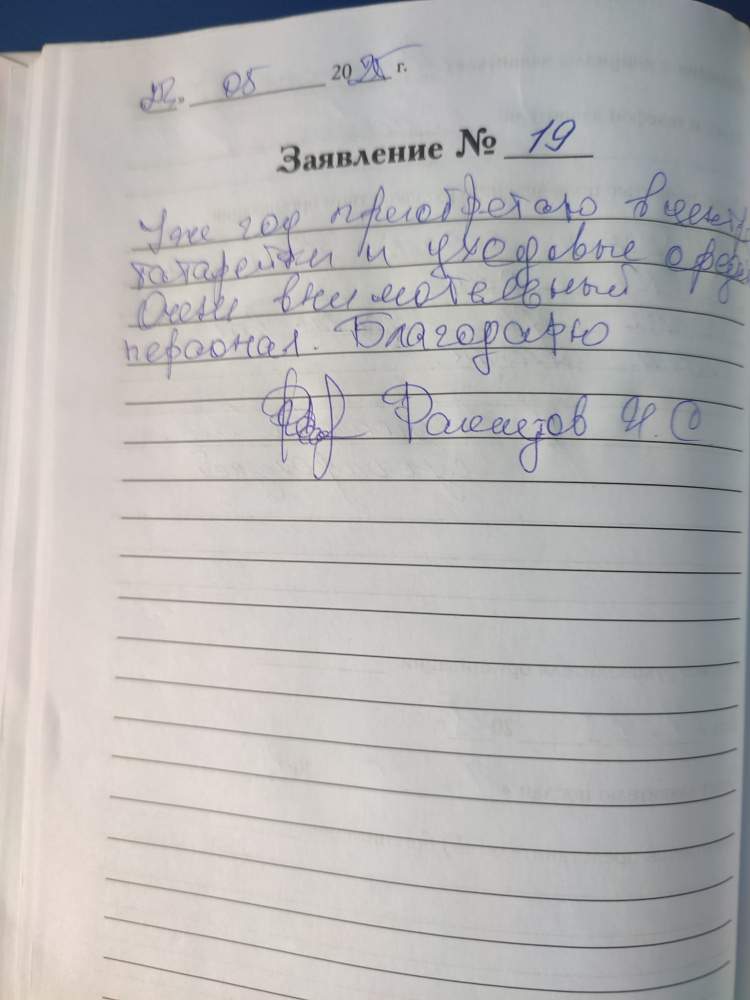 22. 05 2025 г.
Заявление № 19
Уже год приобретаю в центр
батарейки и уходовые сред
Очень внимательный
персонал. Благодарю